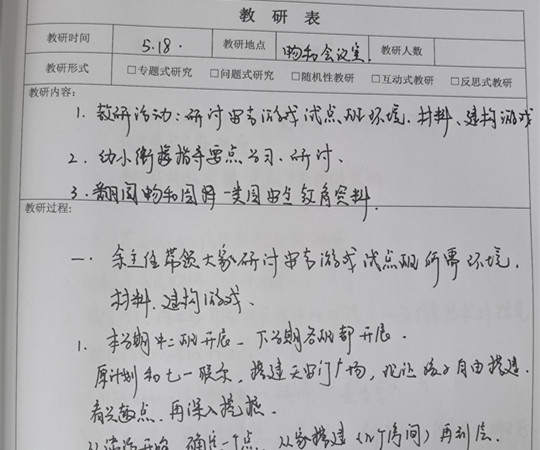 教 研 表
教研时间 5.18. 教研地点 畅和会议室. 教研人数
教研形式 □专题式研究 □问题式研究 □随机性教研 □互动式教研 □反思式教研
教研内容:
1. 教研活动:研讨自主游戏试点班环境、材料、建构游戏
2. 幼小衔接指导要点学习、研讨、
3. 翻阅畅和园 一类园 资料.
教研过程:
一. 余主任带领大家研讨自主游戏试点班所需环境.
材料.建构游戏、
1. 本学期中二班开展 - 下学期各班都开展.
原计划和七一联系,搭建天安门广场,
自由搭建.
有兴趣点.再深入挖掘.
确定一个点. 从家搭建(几个房间)再到层.